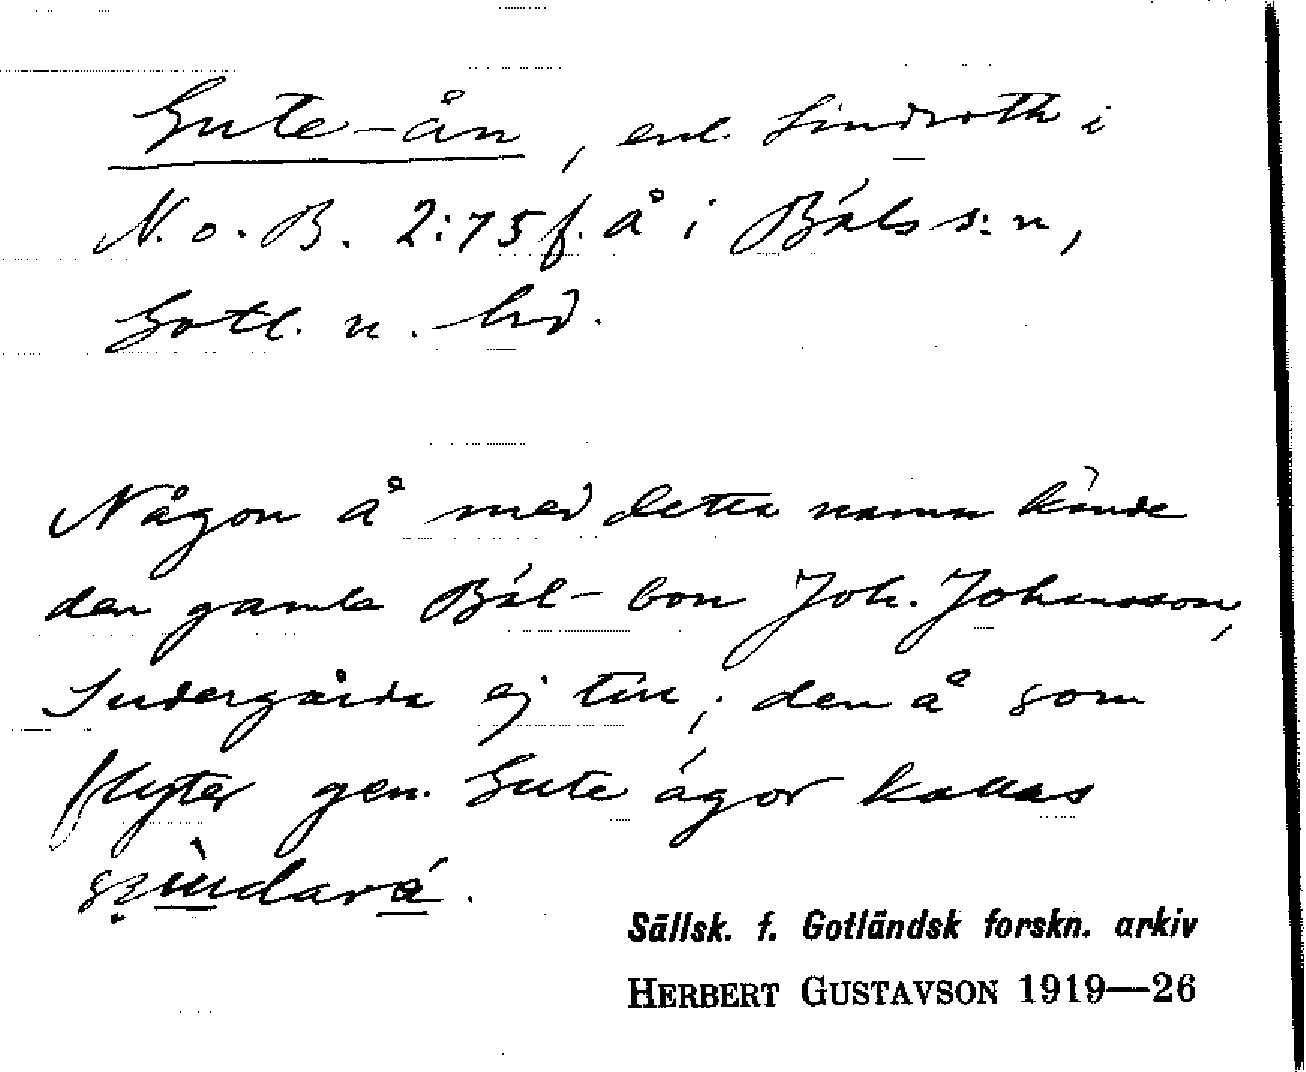 Gute-ån, enl. Lindroth i
N. o. B. 2:75 f. å i Báls s:n,
Gotl. n. hd.
Någon å med detta namn kände
den gamle Bál-bon Joh. Johansson,
Sudergårda ej till; den å som
flyter gen. Gute ágor kallas
Sällsk. f. Gotländsk forskn. arkiv
HERBERT GUSTAVSON 1919—26